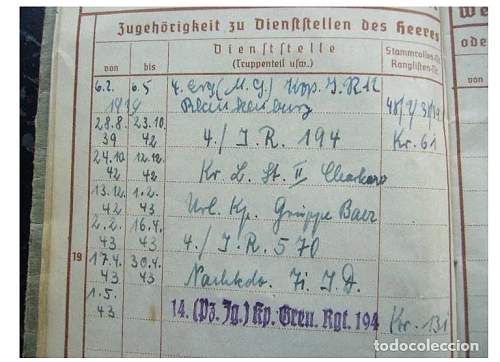 Zugehörigkeit zu Dienststellen des Heeres
We
ode
von
bis
Dienststelle
(Truppenteil usw.)
Stammrollen-Nr.
Ranglisten-Nr.
6.2. 6.5 4. (M.G.) Kop. J.R.12
1939 Blankenburg
28.8. 23.10. 4./ J.R. 194 Kr. 61
39 42
24.10. 12.12. Kr. L. St. II Charkow
42 42
13.12. 1.2. Url. Kp. Gruppe Baer
42 43
2.2. 16.4. 4./ J.R. 570
43 43
19
17.4. 30.4. J.D.
43 43
1.5. 14. (Pz. Jg.) Kp. Gren. Rgt. 194 Kr. 131
43
todocoleccion